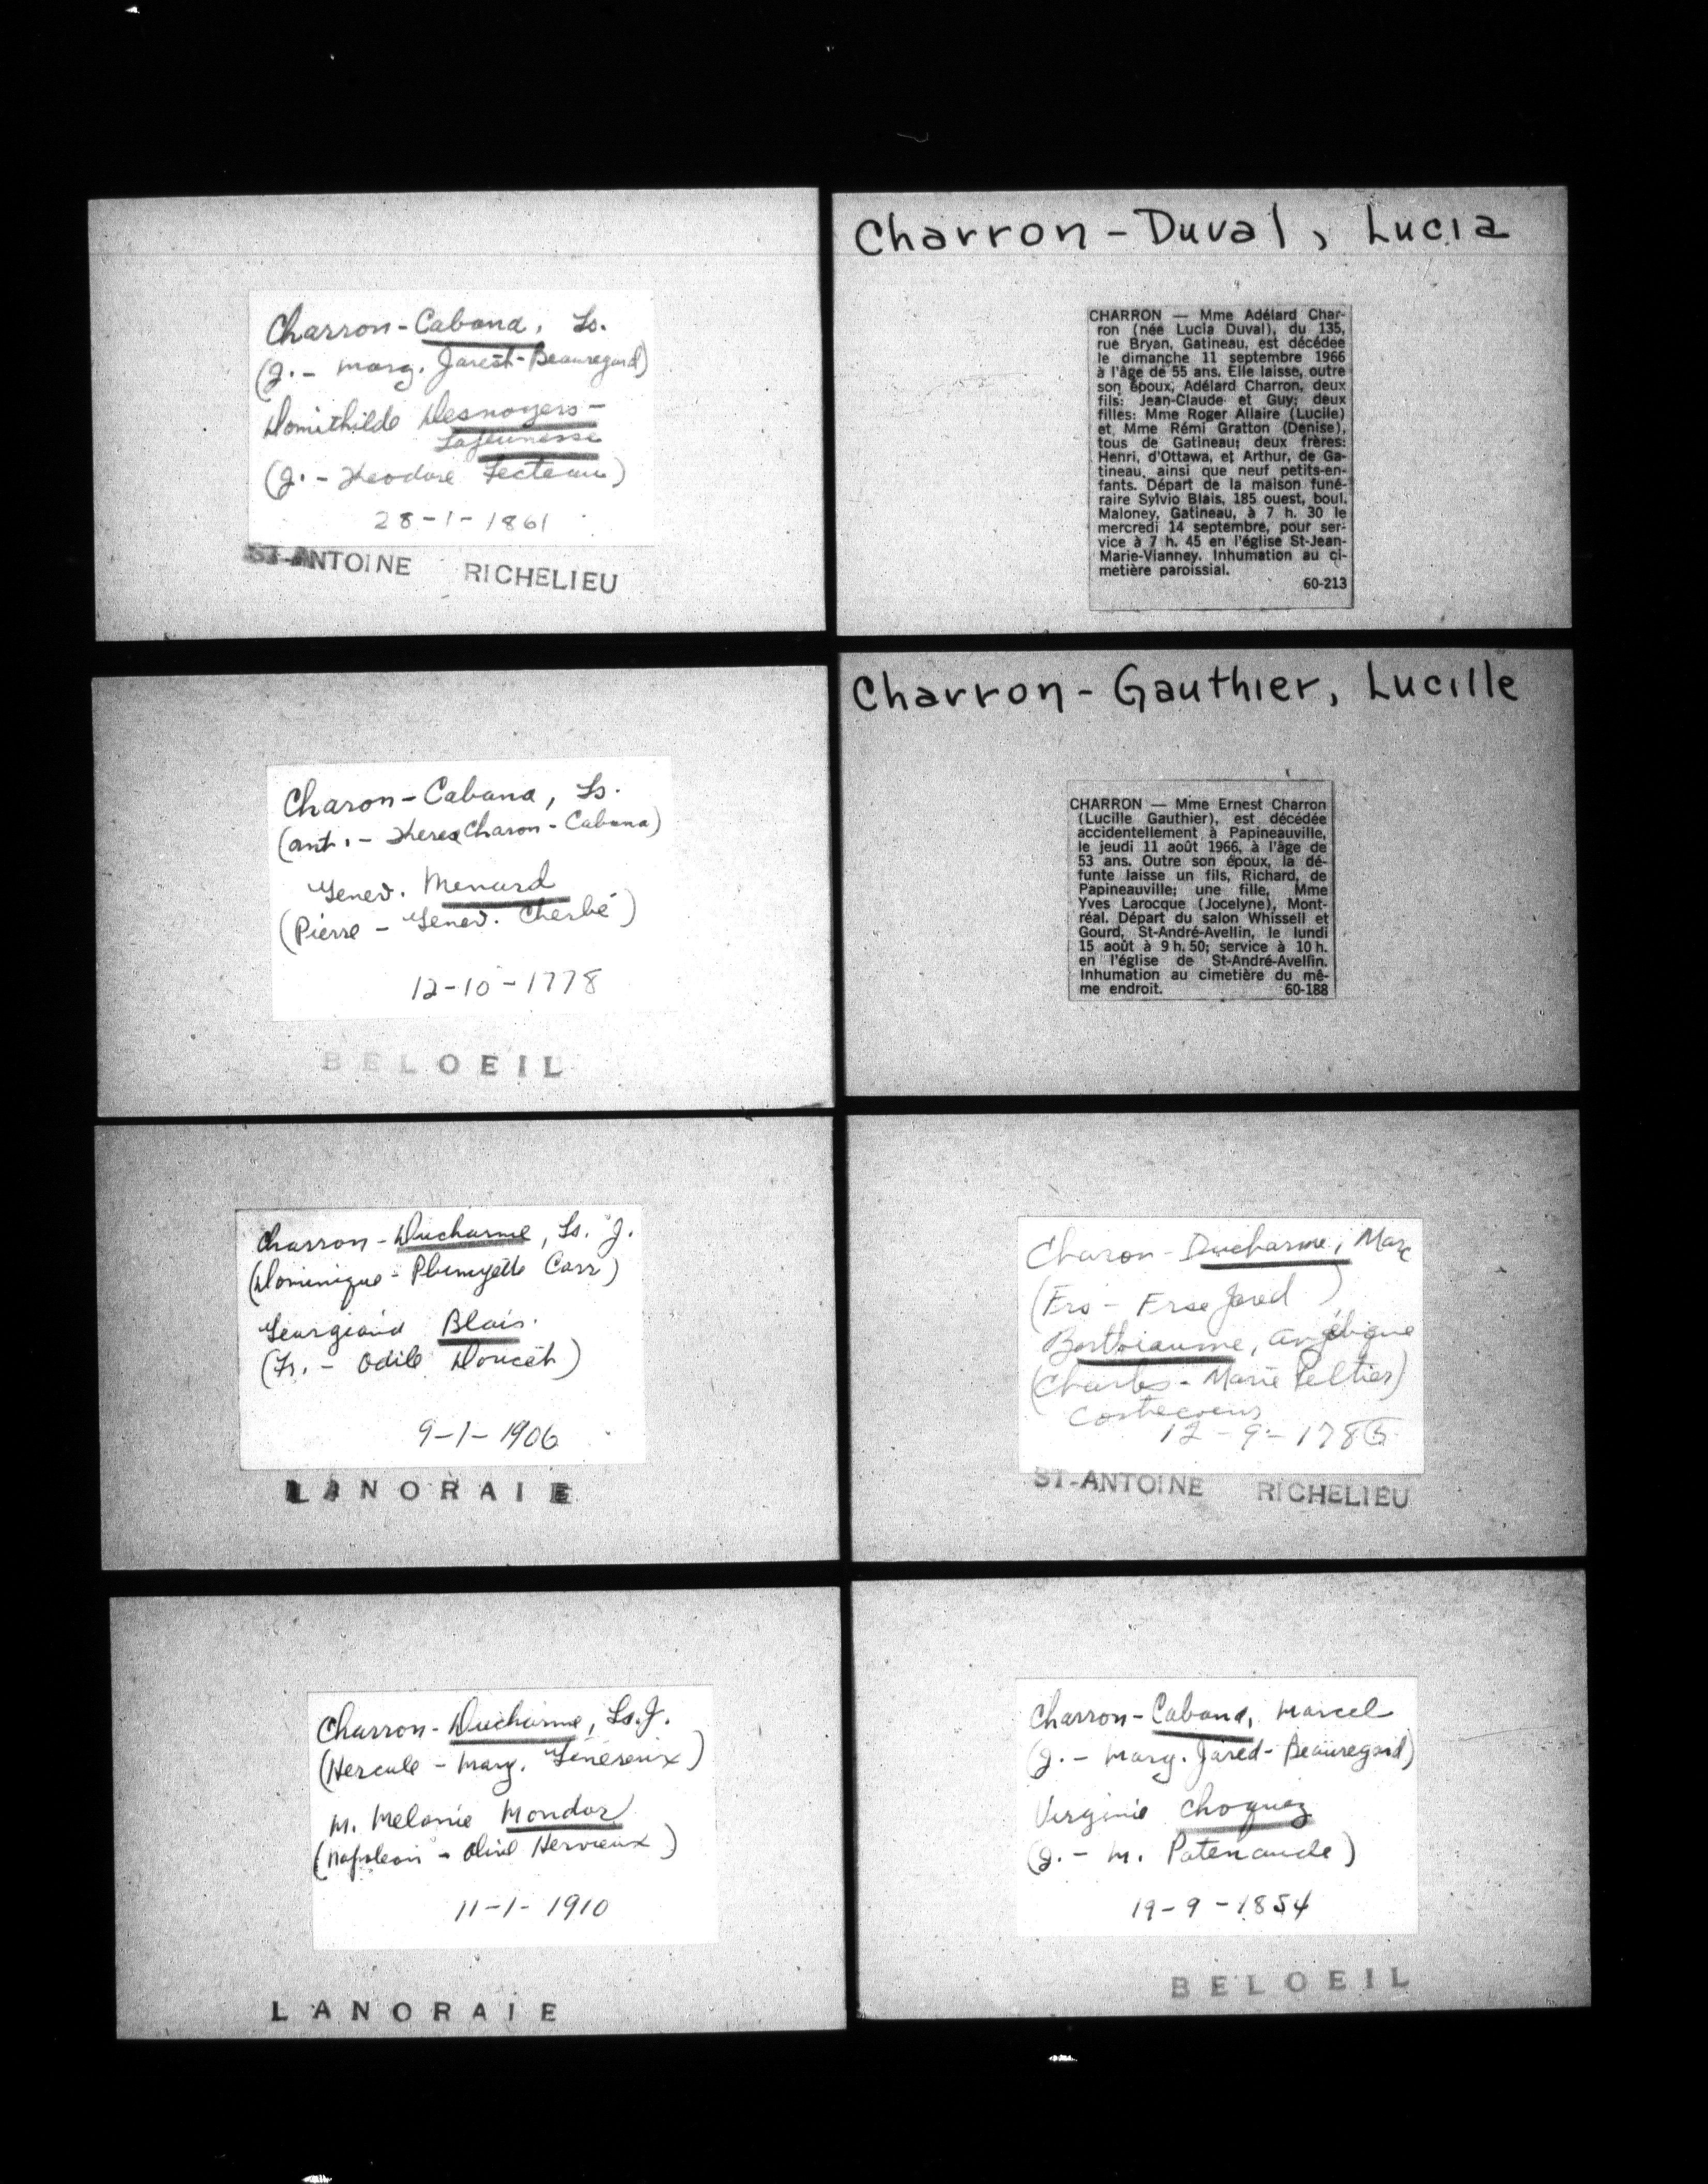 Charron-Cabana, Ls.
(J. - Marg. Jarest-Beauregard)
Domithilde Desnoyers-
Lajeunesse
(J. - Theodore Fecteau)
28-1-1861
ST-ANTOINE RICHELIEU
Charon-Cabana, Ls.
(Ant. - Therese Charon-Cabana)
Genev. Menard
(Pierre - Genev. Cherbé)
12-10-1778
BELOEIL
Charron-Ducharme, Ls. J.
(Dominique - Carr)
Georgiana Blais.
(Fr. - Odile Doucet)
9-1-1906
LANORAIE
Charron-Ducharme, Ls. J.
(Hercule - Marg. Généreux)
M. Melanie Mondor
(Napoleon - Olive Hervieux)
11-1-1910
LANORAIE
Charron-Duval, Lucia
CHARRON — Mme Adélard Char-
ron (née Lucia Duval), du 135,
rue Bryan, Gatineau, est décédée
le dimanche 11 septembre 1966
à l'âge de 55 ans. Elle laisse, outre
son époux, Adélard Charron, deux
fils: Jean-Claude et Guy; deux
filles: Mme Roger Allaire (Lucile)
et Mme Rémi Gratton (Denise),
tous de Gatineau; deux frères:
Henri, d'Ottawa, et Arthur, de Ga-
tineau, ainsi que neuf petits-en-
fants. Départ de la maison funé-
raire Sylvio Blais, 185 ouest, boul.
Maloney, Gatineau, à 7 h. 30 le
mercredi 14 septembre, pour ser-
vice à 7 h. 45 en l'église St-Jean-
Marie-Vianney. Inhumation au ci-
metière paroissial.
60-213
Charron-Gauthier, Lucille
CHARRON — Mme Ernest Charron
(Lucille Gauthier), est décédée
accidentellement à Papineauville,
le jeudi 11 août 1966, à l'âge de
53 ans. Outre son époux, la dé-
funte laisse un fils, Richard, de
Papineauville; une fille, Mme
Yves Larocque (Jocelyne), Mont-
réal. Départ du salon Whissell et
Gourd, St-André-Avellin, le lundi
15 août à 9 h. 50; service à 10 h.
en l'église de St-André-Avellin.
Inhumation au cimetière du mê-
me endroit. 60-188
Charon-Ducharme, Marc
(Frs - Frse Jared)
Berthiaume, Angélique
(Charles - Marie Peltier)
Contrecoeur
12-9-1785
ST-ANTOINE RICHELIEU
Charron-Cabana, Marcel
(J. - Marg. Jared-Beauregard)
Virginie Choquez
(J. - M. Patenaude)
19-9-1854
BELOEIL